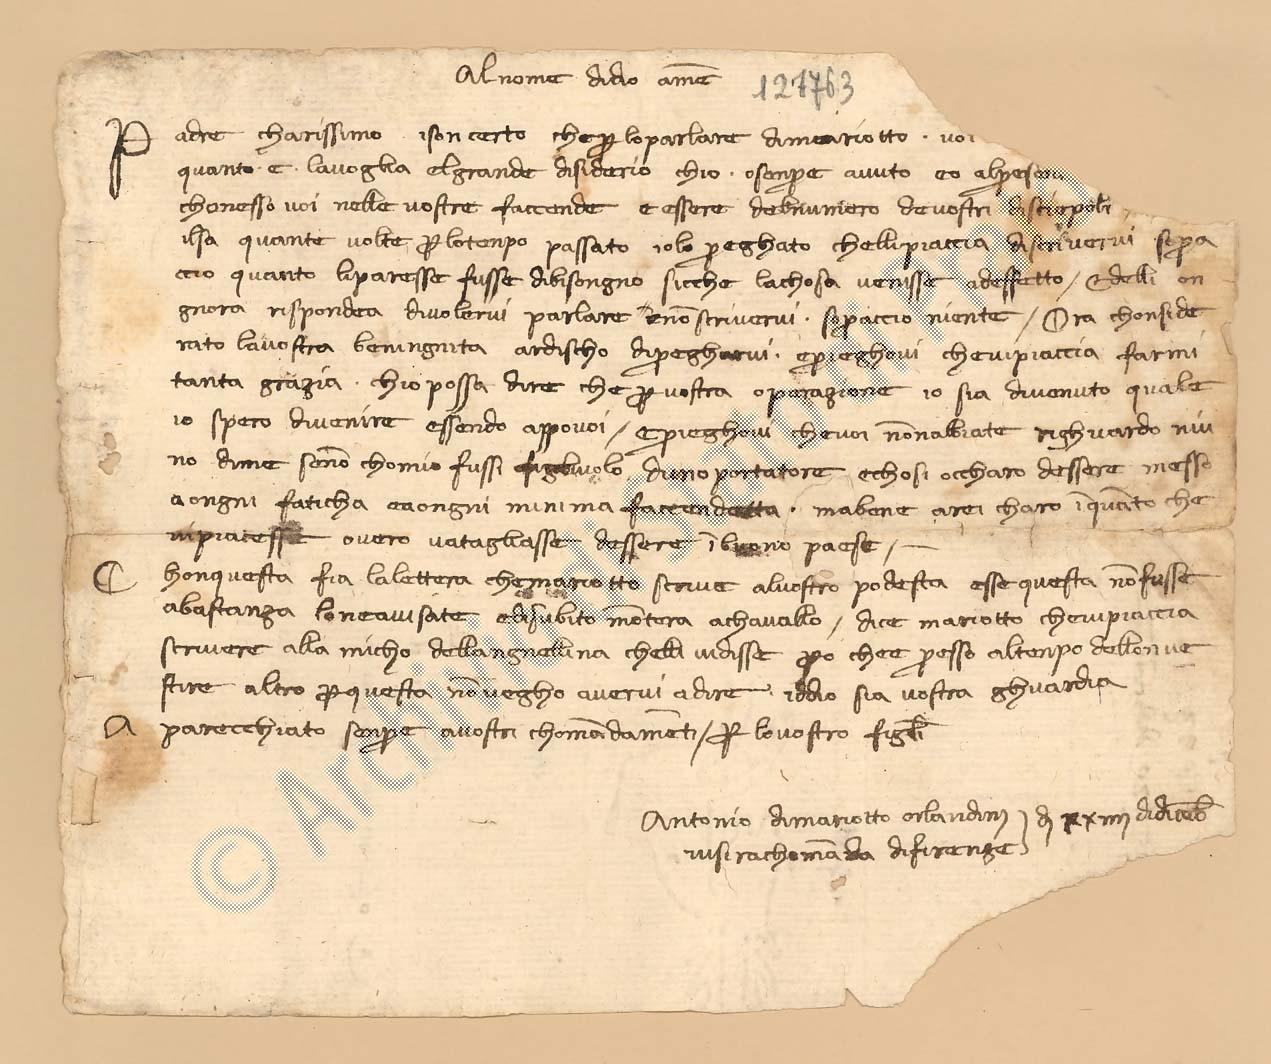 Al nome didio ame 121763
Padre charissimo ison certo che p loparlare dimariotto voi
quanto e lavoglia elgrande disiderio chio osenpre avuto eo alpresen
chonesso voi nelle vostre faccende e essere delnumero devostri disciepoli
ilsa quante volte p lotenpo passato iolo preghato chellipiaccia discrivervi sopra
ccio quanto liparesse fusse dibisongno sicche lachosa venisse adeffetto / & delli on
gnora rispondea divolervi parlare eno scrivervi sopraccio niente / Ora chonside
rato lavostra beningnita ardischo dipregharvi epriegovi chevipiaccia farmi
tanta grazia chio possa dire che p vostra operazione io sia divenuto quale
io spero divenire essendo appovoi / epriegovi chevoi nonabiate righuardo niu
no dime seno chomio fussi figliuolo duno portatore echosi occharo dessere messo
a ongni faticha eaongni minima faccendetta mabene arei charo iquato che
vipiacesse overo vatagliasse dessere i buono paese /
Chonquesta fia lalettera chemariotto scrive alvostro podesta essequesta no fusse
abastanza loneavisate edisubito motera achavallo / dice mariotto chevipiaccia
scrivere alla micho dellangnellina chelli vidisse po chee presso altenpo dellonve
stire altro p questa no vegho avervi adire iddio sia vostra ghuardia
Aparecchiato senpre avostri chomadameti / p lovostro figli
Antonio dimariotto orlandini di xxiiii didiceb
visirachomada difirenze
© Archivio di Stato di Prato